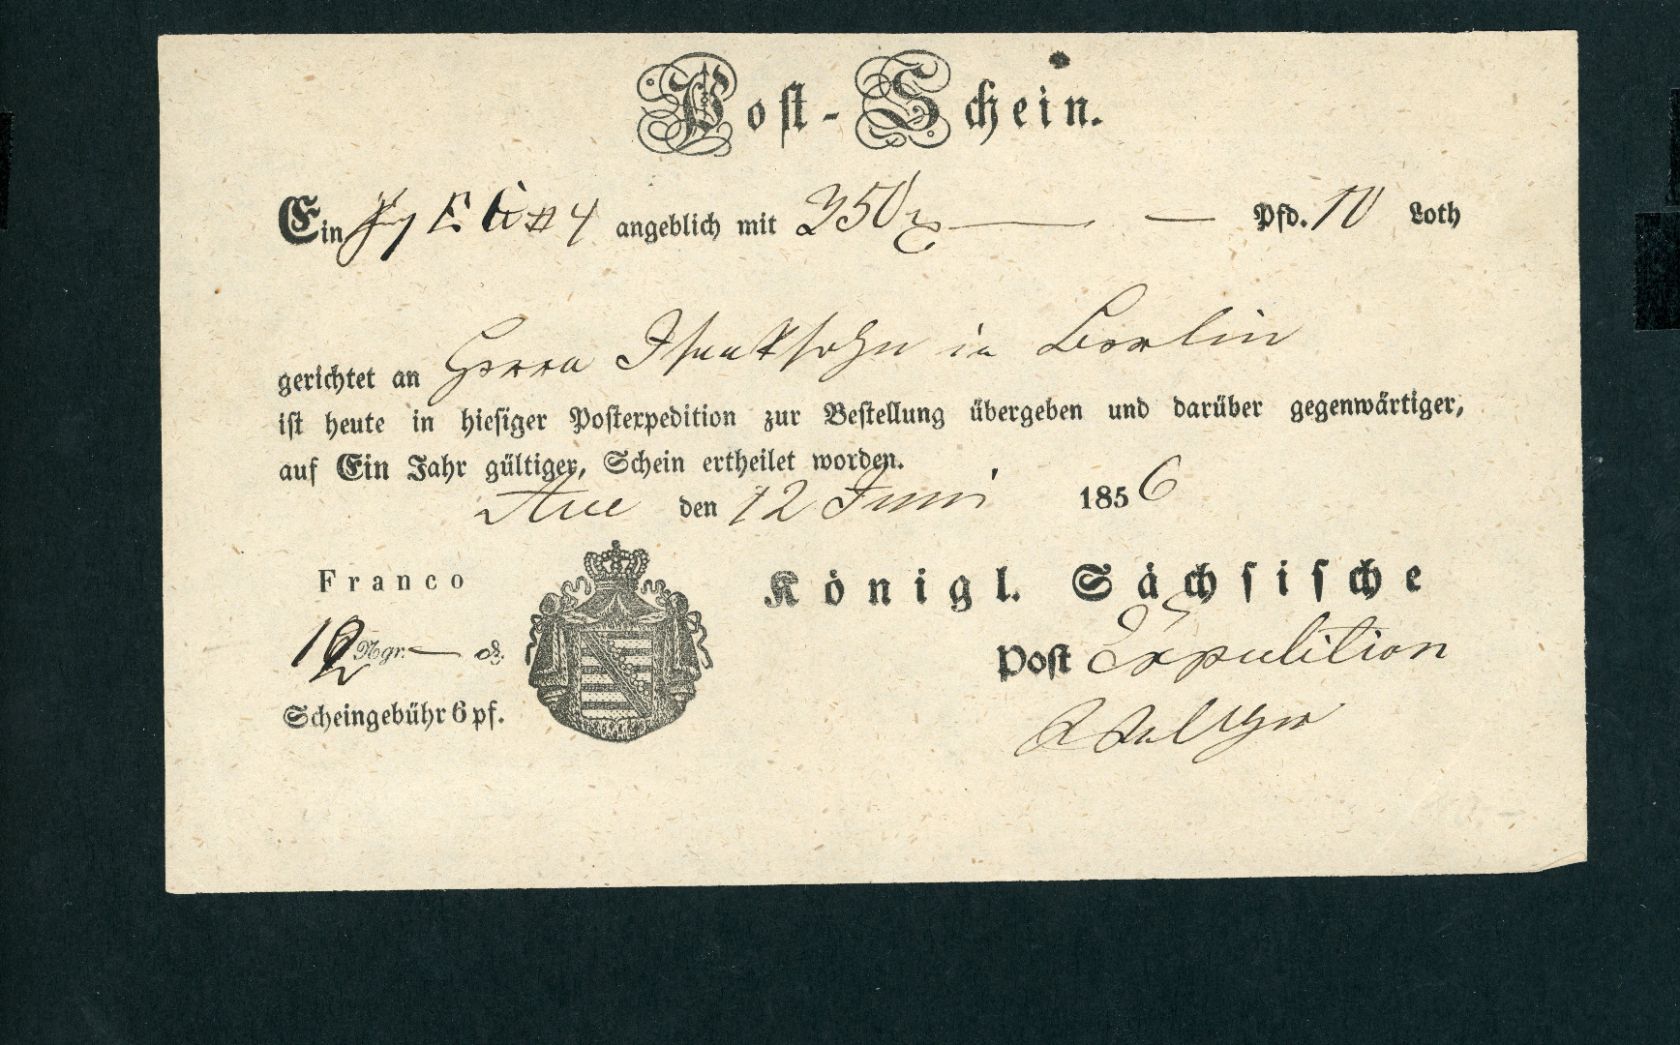 Post-Schein.
Ein angeblich mit 350 — — Pfd. 10 Loth
gerichtet an Herrn Isaaksohn in Berlin
ist heute in hiesiger Postexpedition zur Bestellung übergeben und darüber gegenwärtiger,
auf Ein Jahr gültiger, Schein ertheilet worden.
Aue den 12 Juni 1856
Franco
Königl. Sächsische
Ngr. —
Post Expedition
Scheingebühr 6 pf.